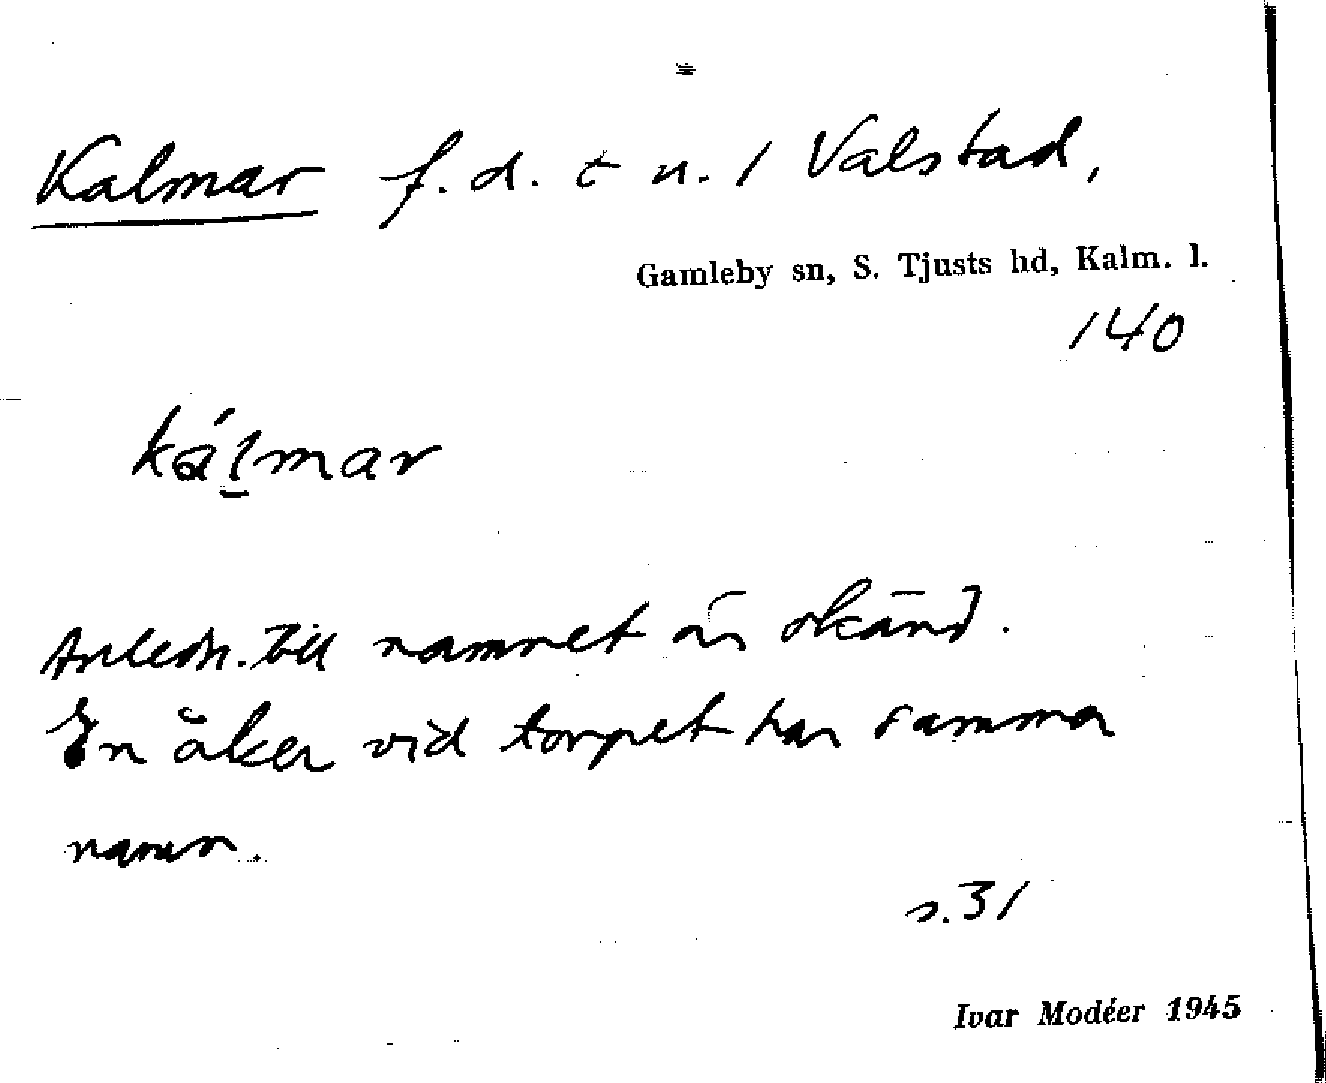 Kalmar f.d. t u. 1 Valstad,
Gamleby sn, S. Tjusts hd, Kalm. l.
140
kálmar
Anledn. till namnet är okänd.
En åker vid torpet har samma
namn.
s. 31
Ivar Modéer 1945